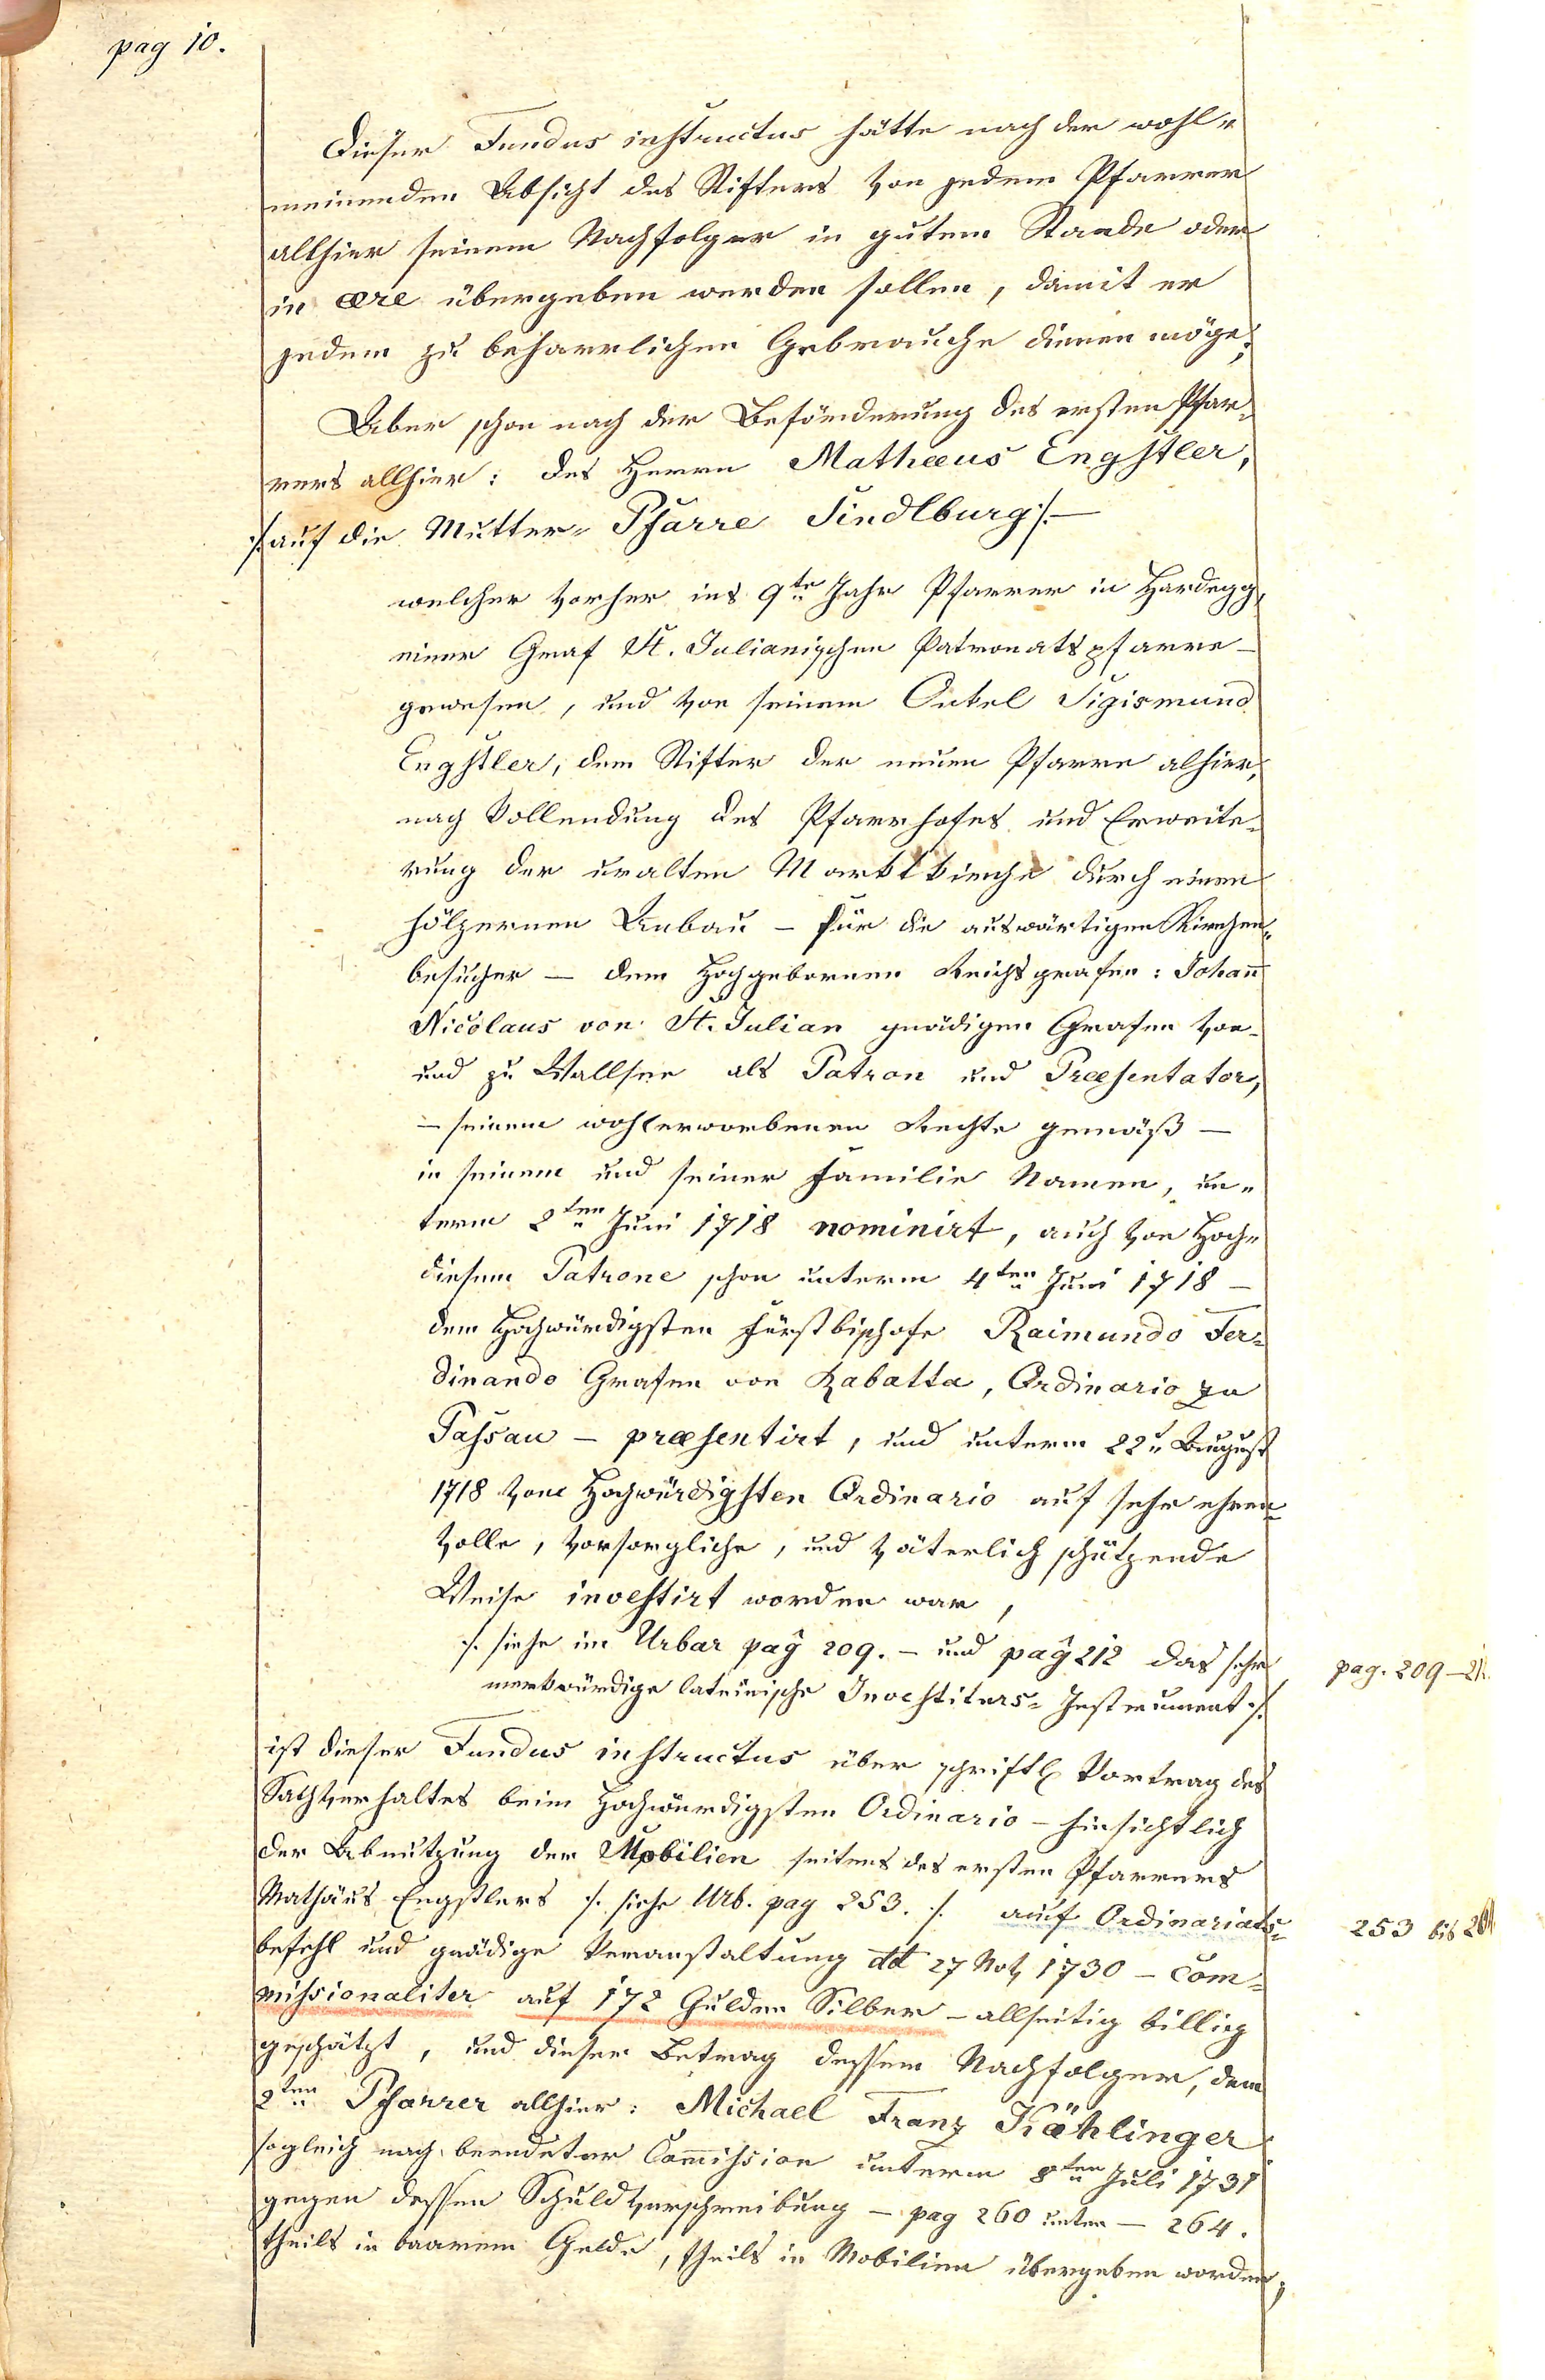 pag 10.
Dieser Fundus instructus hätte nach der wohl„
meinenden Absicht des Stifters von jedem Pfarrer
allhier seinem Nachfolger in gutem Stande oder
in ære übergeben werden sollen, damit er
jedem zu beharrlichen Gebrauche dienen möge;
Aber schon nach der Beförderung des ersten Pfar„
rers allhier: des Herrn Mathæus Engstler,
/: auf die Mutter= Pfarre Sindlburg :/ —
welcher vorher ins 9te Jahr Pfarrer in Hardegg,
einer Graf St. Julianischen Patronatspfarre —
gewesen, und von seinem Onkel Sigismund
Engstler, dem Stifter der neuen Pfarre alhier,
nach Vollendung des Pfarrhofes und Erweite„
rung der uralten Marktkirche durch einen
hölzernen Anbau – für die auswärtigen Kirchen„
besucher — dem Hochgebornen Reichsgrafen: Johañ
Nicolaus von St. Julian gnädigen Grafen von
und zu Wallsee als Patron und Præsentator,
— seinem wohlerworbenen Rechte gemäß —
in seinem und seiner Familie Namen, un„
term 2ten Juni 1718 nominirt, auch von Hoch„
diesem Patrone schon unterm 4ten Juni 1718 —
dem Hochwürdigsten Fürstbischofe Raimundo Fer=
dinando Grafen von Rabatta, Ordinario zu
Passau – præsentirt, und unterm 22n August
1718 vom Hochwürdigsten Ordinario auf sehr ehren=
volle, vorsorgliche, und väterlich schützende
Weise investirt worden war,
/: siehe im Urbar pag 209. – und pag 212 das sehr
merkwürdige lateinische Investiturs= Instrument :/
ist dieser Fundus instructus über schriftl Vortrag des
Sachverhaltes beim Hochwürdigsten Ordinario – hinsichtlich
der Abnützung der Mobilien seitens des ersten Pfarrers
Mathäus Engstlers /: siehe Urb. pag 253. :/ auf Ordinariats=
befehl und gnädige Veranstaltung dd 27 Nov 1730 – com=
missionaliter auf 172 Gulden Silber – allseitig billig
geschätzt, und dieser Betrag dessem Nachfolger, dem
2ten Pfarrer allhier: Michael Franz Kähhlinger
sogleich nach beendeter Com̃ission unterm 8ten Juli 1731
gegen dessen Schuldverschreibung – pag 260 unten – 264.
theils in baarem Gelde, theils in Mobilien übergeben worden;
pag. 209–21
253 bis 264